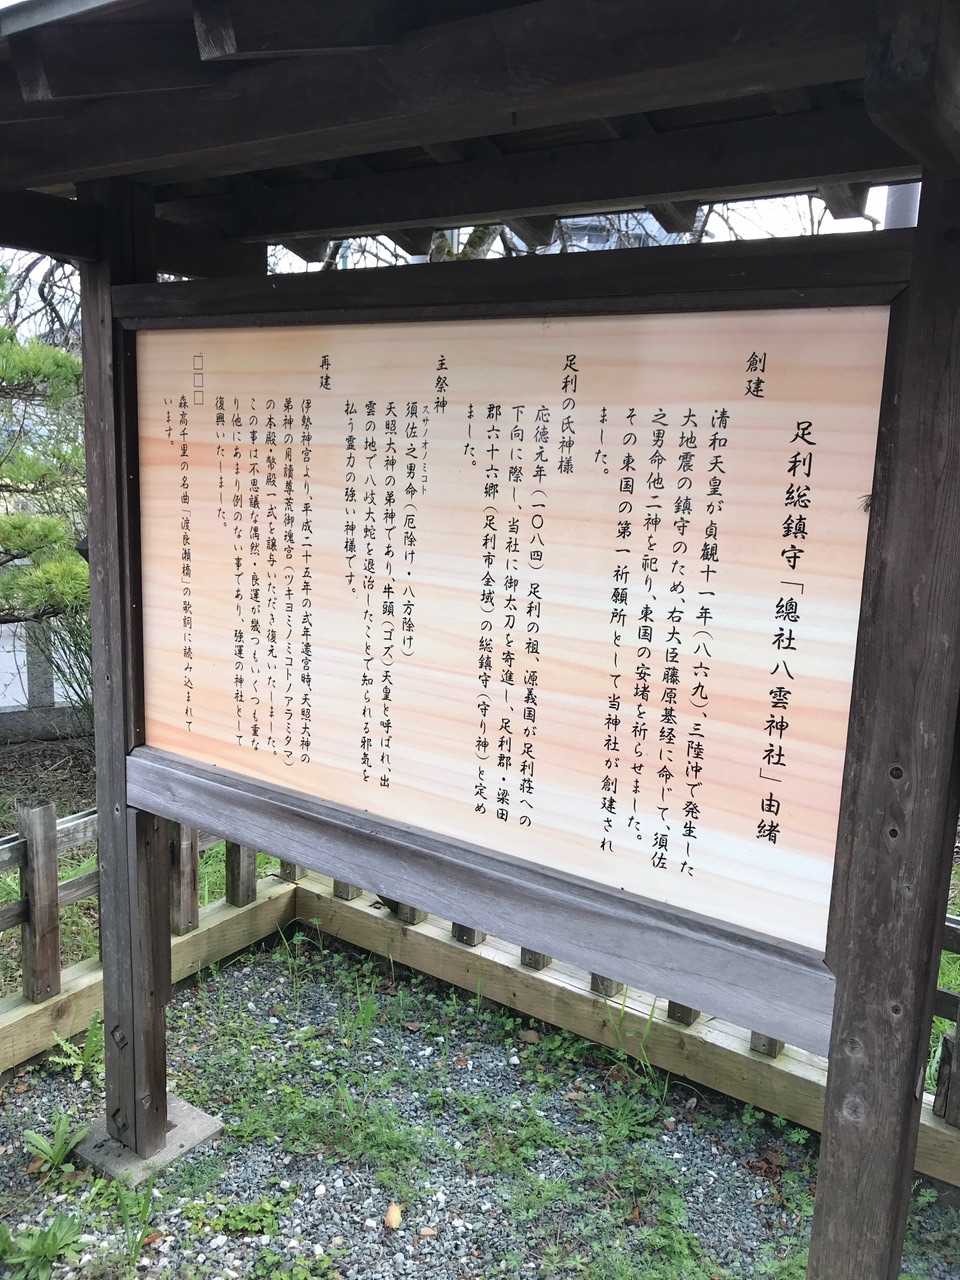 足利総鎮守「總社八雲神社」由緒
創建
清和天皇が貞観十一年(八六九)、三陸沖で発生した
大地震の鎮守のため、右大臣藤原基経に命じて、須佐
之男命他二神を祀り、東国の安堵を祈らせました。
その東国の第一祈願所として当神社が創建され
ました。
足利の氏神様
応徳元年(一〇八四)足利の祖、源義国が足利荘への
下向に際し、当社に御太刀を寄進し、足利郡・梁田
郡六十六郷(足利市全域)の総鎮守(守り神)と定め
ました。
主祭神
スサノオノミコト
須佐之男命(厄除け・八方除け)
天照大神の弟神であり、牛頭(ゴズ)天皇と呼ばれ、出
雲の地で八岐大蛇を退治したことで知られる邪気を
払う霊力の強い神様です。
再建
伊勢神宮より、平成二十五年の式年遷宮時、天照大神の
弟神の月讀尊荒御魂宮(ツキヨミノミコトノアラミタマ)
の本殿・幣殿一式を譲与いただき復元いたしました。
この事は不思議な偶然・良運が幾つもいくつも重な
り他にあまり例のない事であり、強運の神社として
復興いたしました。
□□□
森高千里の名曲「渡良瀬橋」の歌詞に読み込まれて
います。